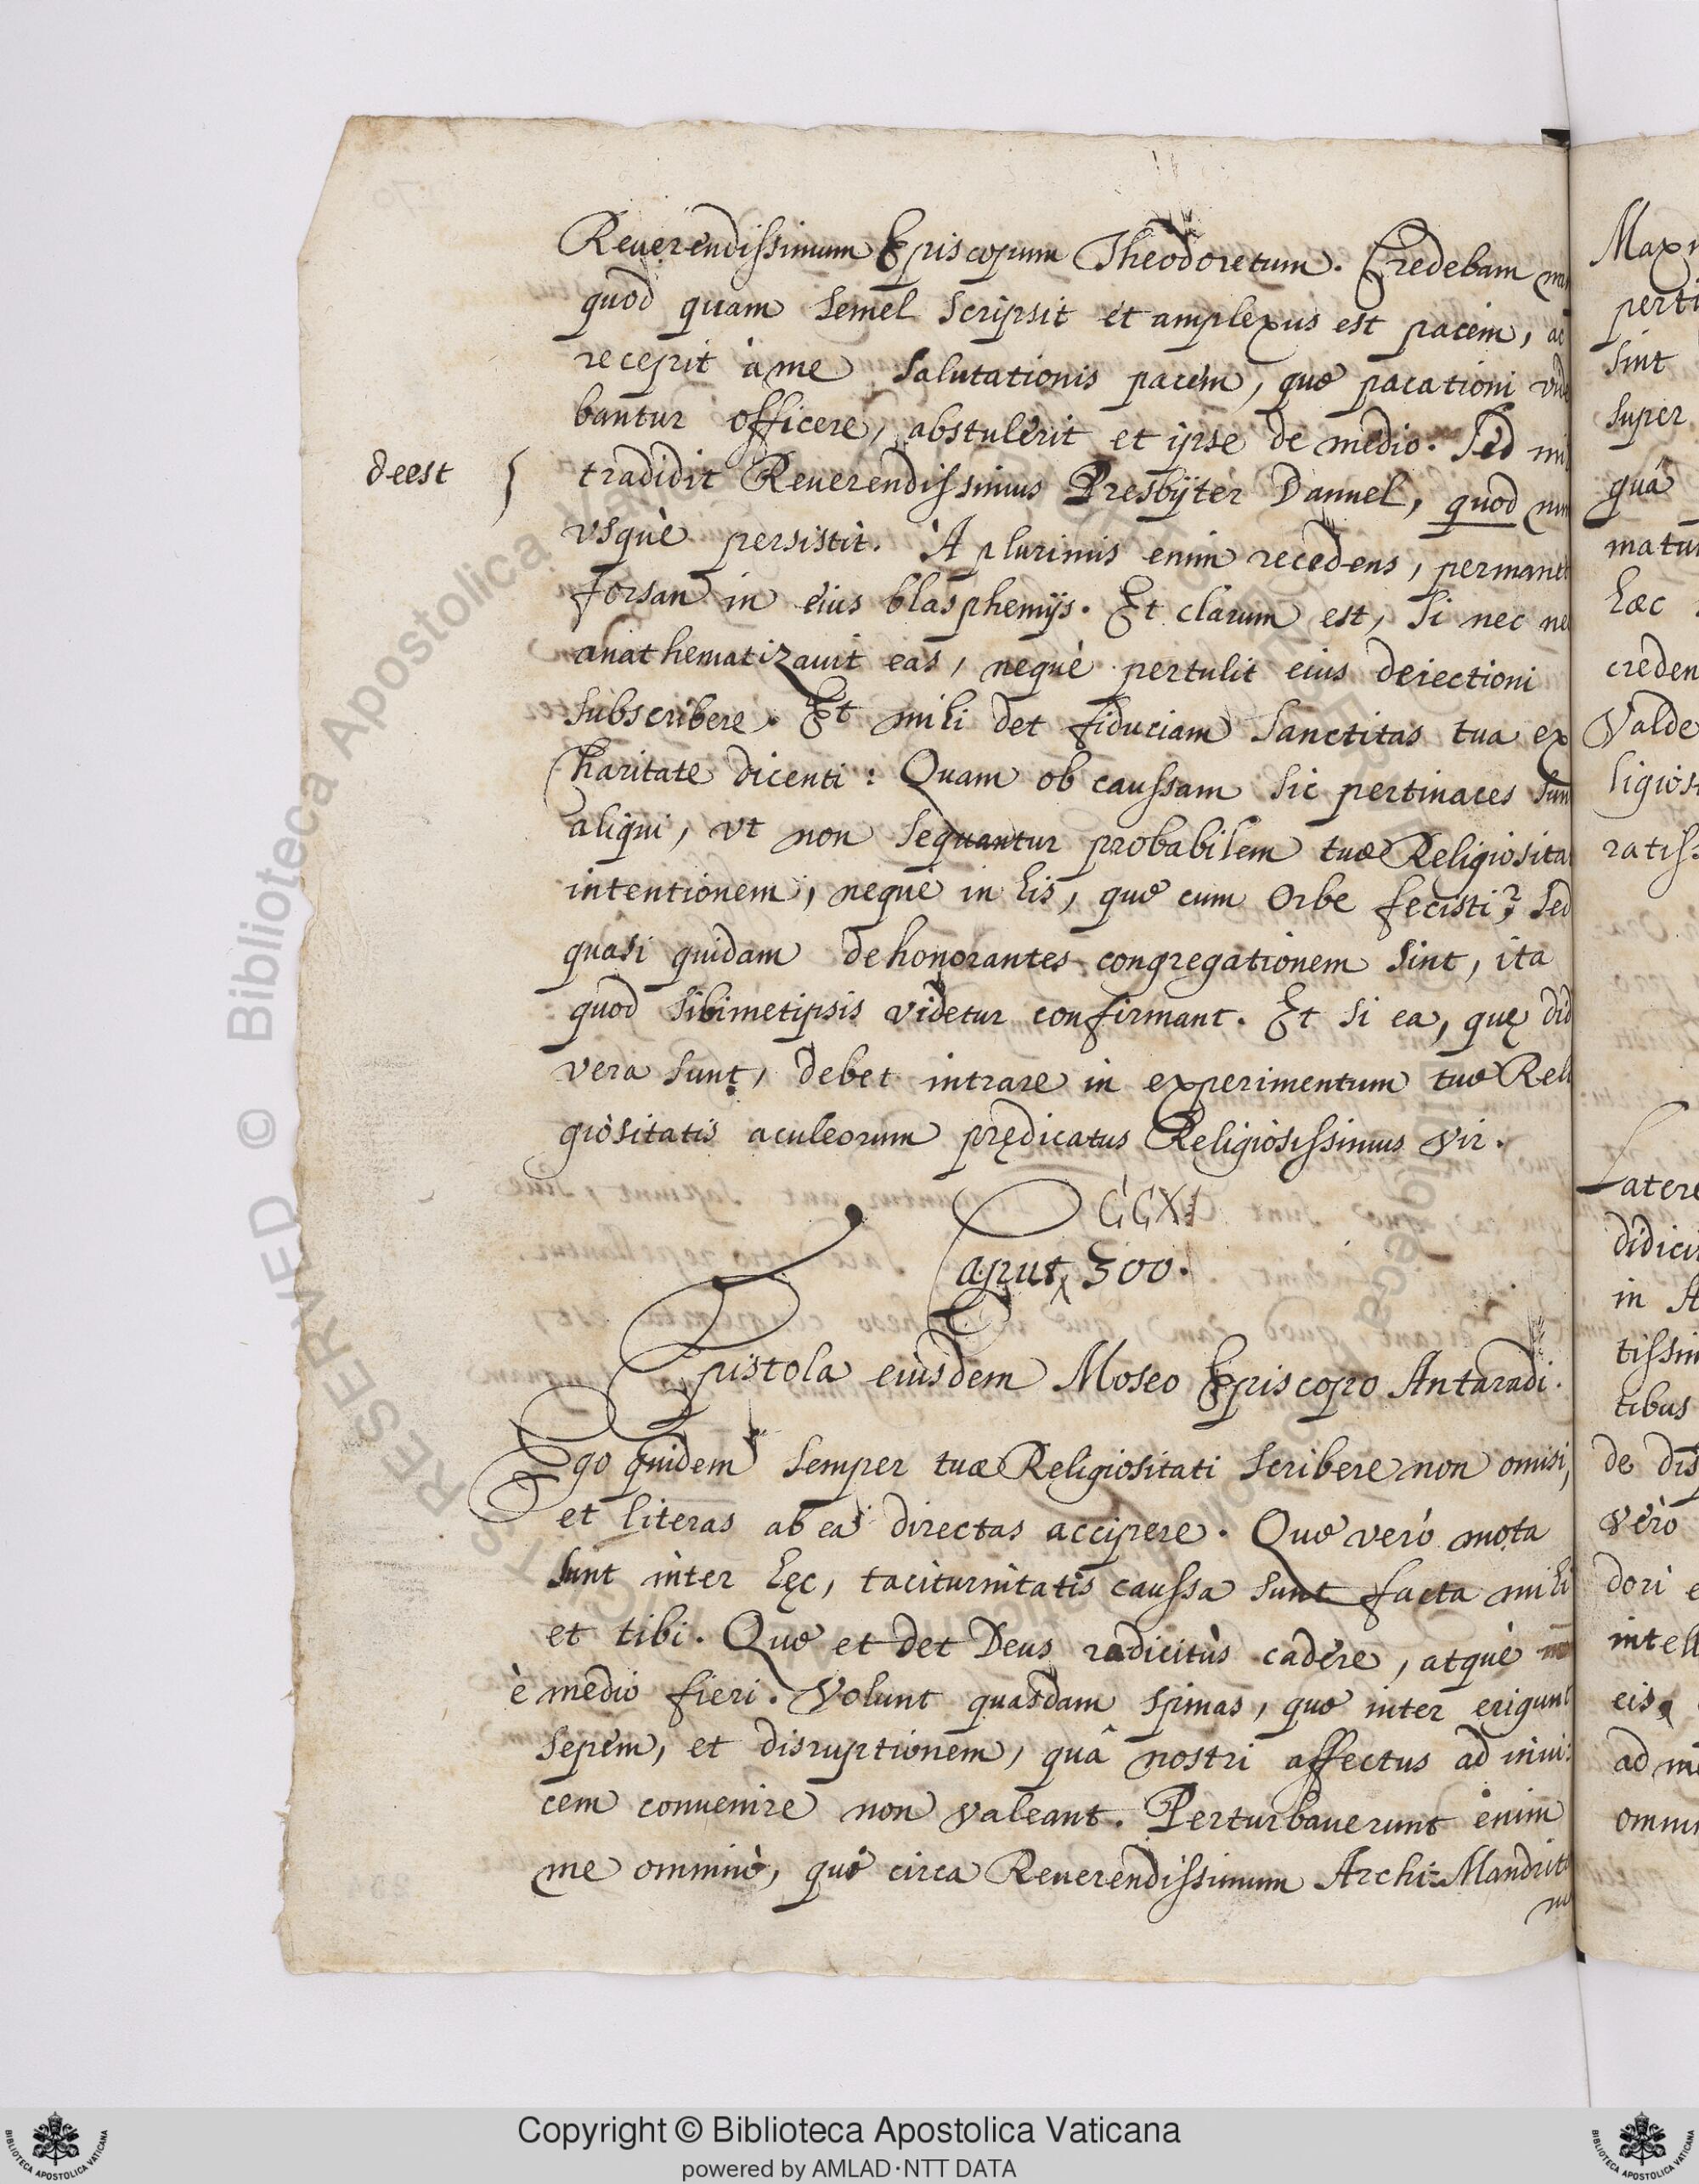 Reuerendissimum Episcopum Theodoretum. Credebam
quod quam semel scripsit et amplexus est pacem, ac
recepit à me salutationis pacem, quæ pacationi
bantur officere, abstulerit et ipse de medio. Sed
deest tradidit Reuerendissimus Presbÿter Daniel, quod
vsquè persistit. A plurimis enim recedens, permanet
forsan in eius blasphemijs. Et clarum est, si nec
anathematizauit eas, nequè pertulit eius deiectioni
subscribere. Et mihi det fiduciam Sanctitas tua ex
Charitate dicenti: Quam ob caussam sic pertinaces sun
aliqui, vt non sequantur probabilem tuæ Religiosita
intentionem, nequè in his, quæ cum Orbe fecisti? Sed
quasi quidam dehonorantes congregationem sint, ita
quod sibimetipsis videtur confirmant. Et si ea, quę
vera sunt, debet intrare in experimentum tuæ Reli
giositatis aculeorum prędicatus Religiosissimus vir.
CCXI
Caput 300.
Epistola eiusdem Moseo Episcopo Antaradi.
Ego quidem semper tuæ Religiositati scribere non omisi,
et literas ab ea directas accipere. Quæ verò mota
sunt inter hęc, taciturnitatis caussa sunt facta mihi
et tibi. Quæ et det Deus radicitùs cadere, atquè
è medio fieri. Volunt quasdam spinas, quæ inter erigunt
sepem, et disruptionem, quâ nostri affectus ad inui:
cem conuenire non valeant. Perturbauerunt enim
me omninò, quæ circa Reuerendissimum Archi-Mandrit
perti
sint
super
quâ
hæc
creden
Valde
ligios
ratiss
Latere
didici
in
tissim
tibus
de dis
verò
dori
intell
eis
ad me
© Biblioteca Apostolica Vaticana
Copyright © Biblioteca Apostolica Vaticana
powered by AMLAD·NTT DATA
BIBLIOTECA APOSTOLICA VATICANA
BIBLIOTECA APOSTOLICA VATICANA